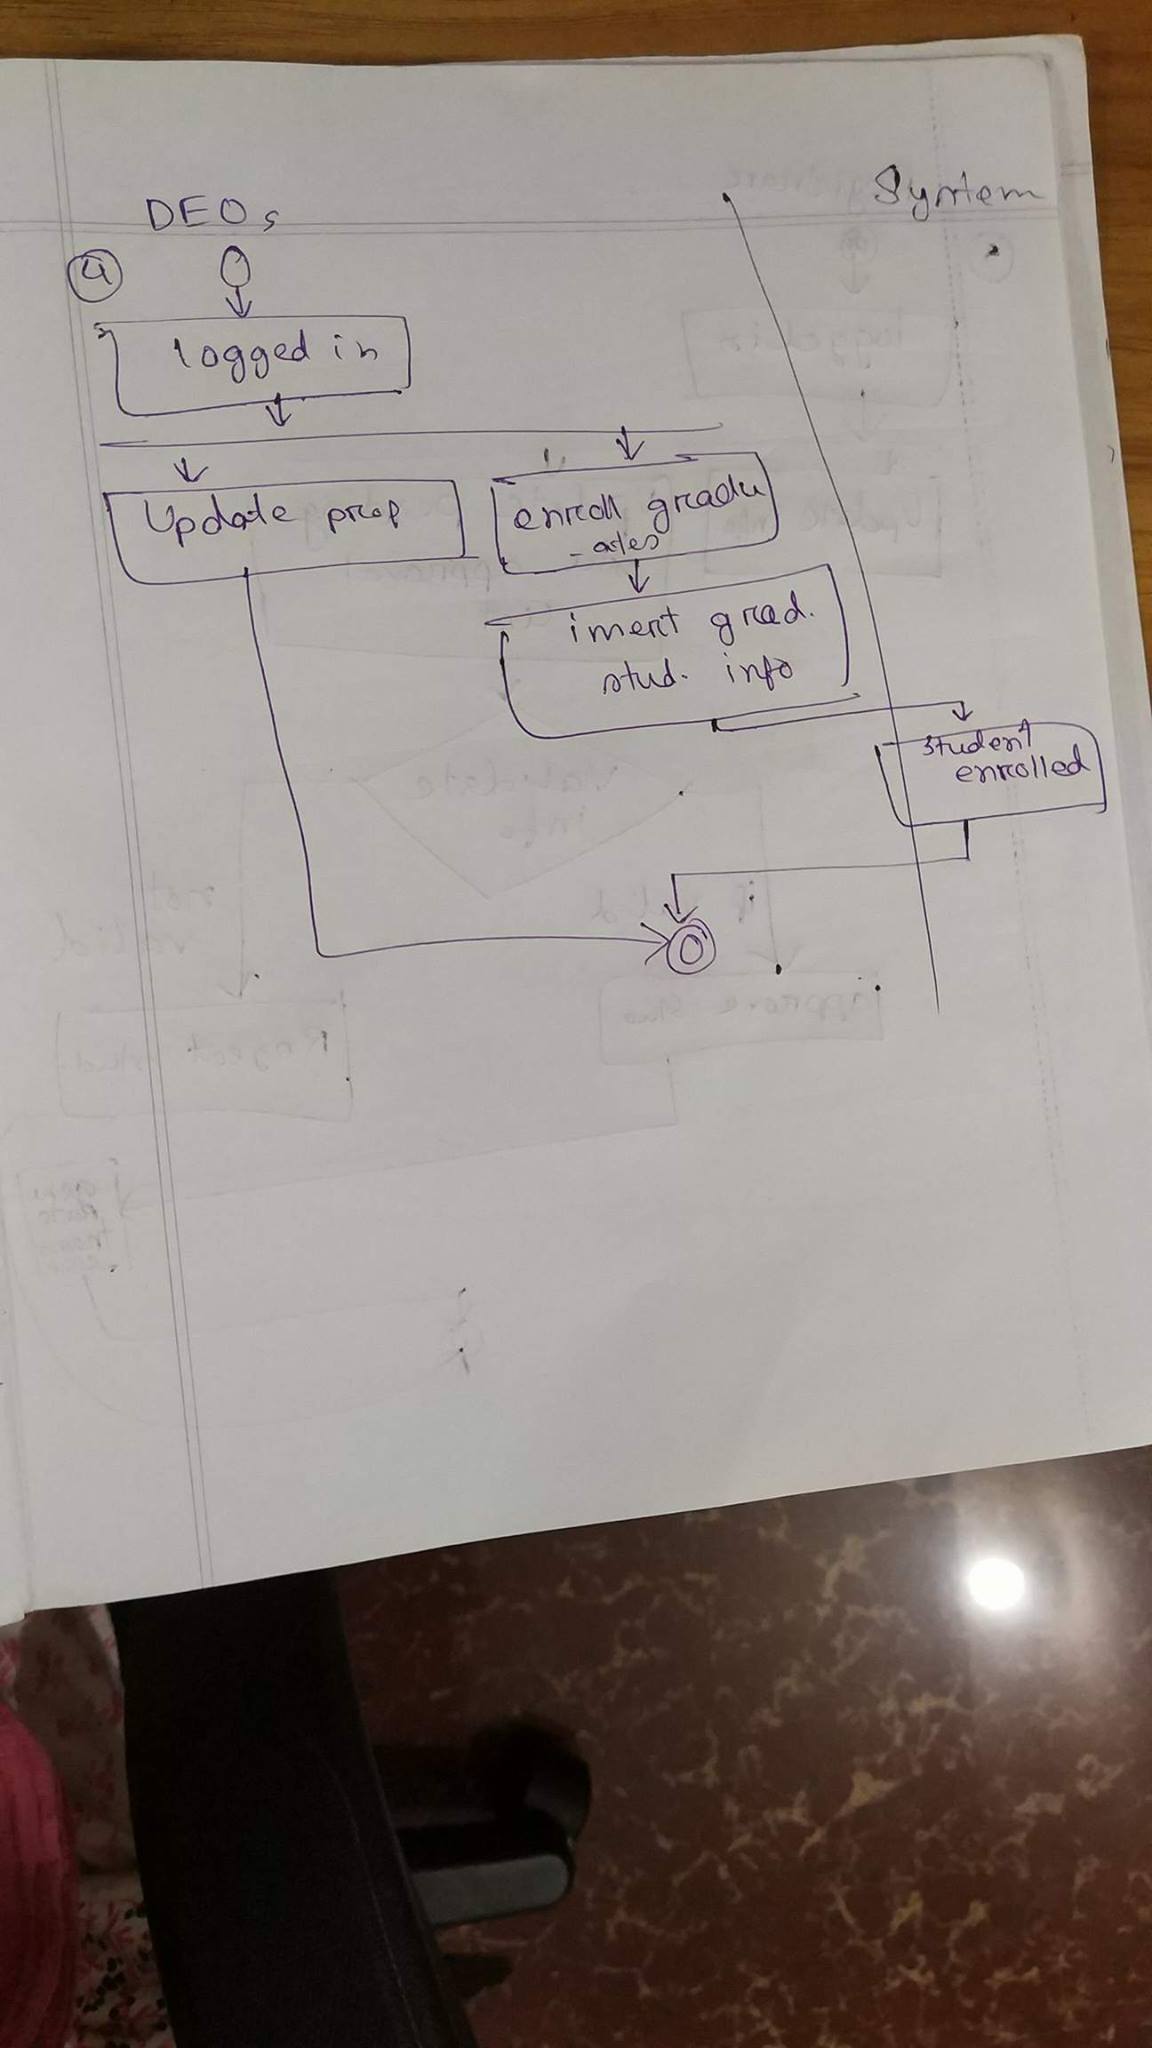 DEOs
System
4
logged in
Update prof
enroll gradu
-ates
insert grad.
stud. info
student
enrolled